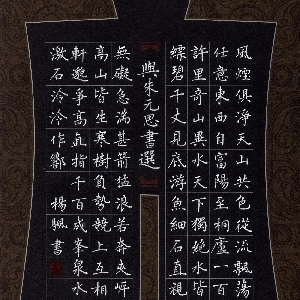 風煙俱淨天山共色從流飄蕩
任意東西自富陽至桐廬一百
許里奇山異水天下獨絕水皆
縹碧千丈見底游魚細石直視
與朱元思書選
無礙急湍甚箭猛浪若奔夾岸
高山皆生寒樹負勢競上互相
軒邈爭高直指千百成峯泉水
激石泠泠作響 楊 書